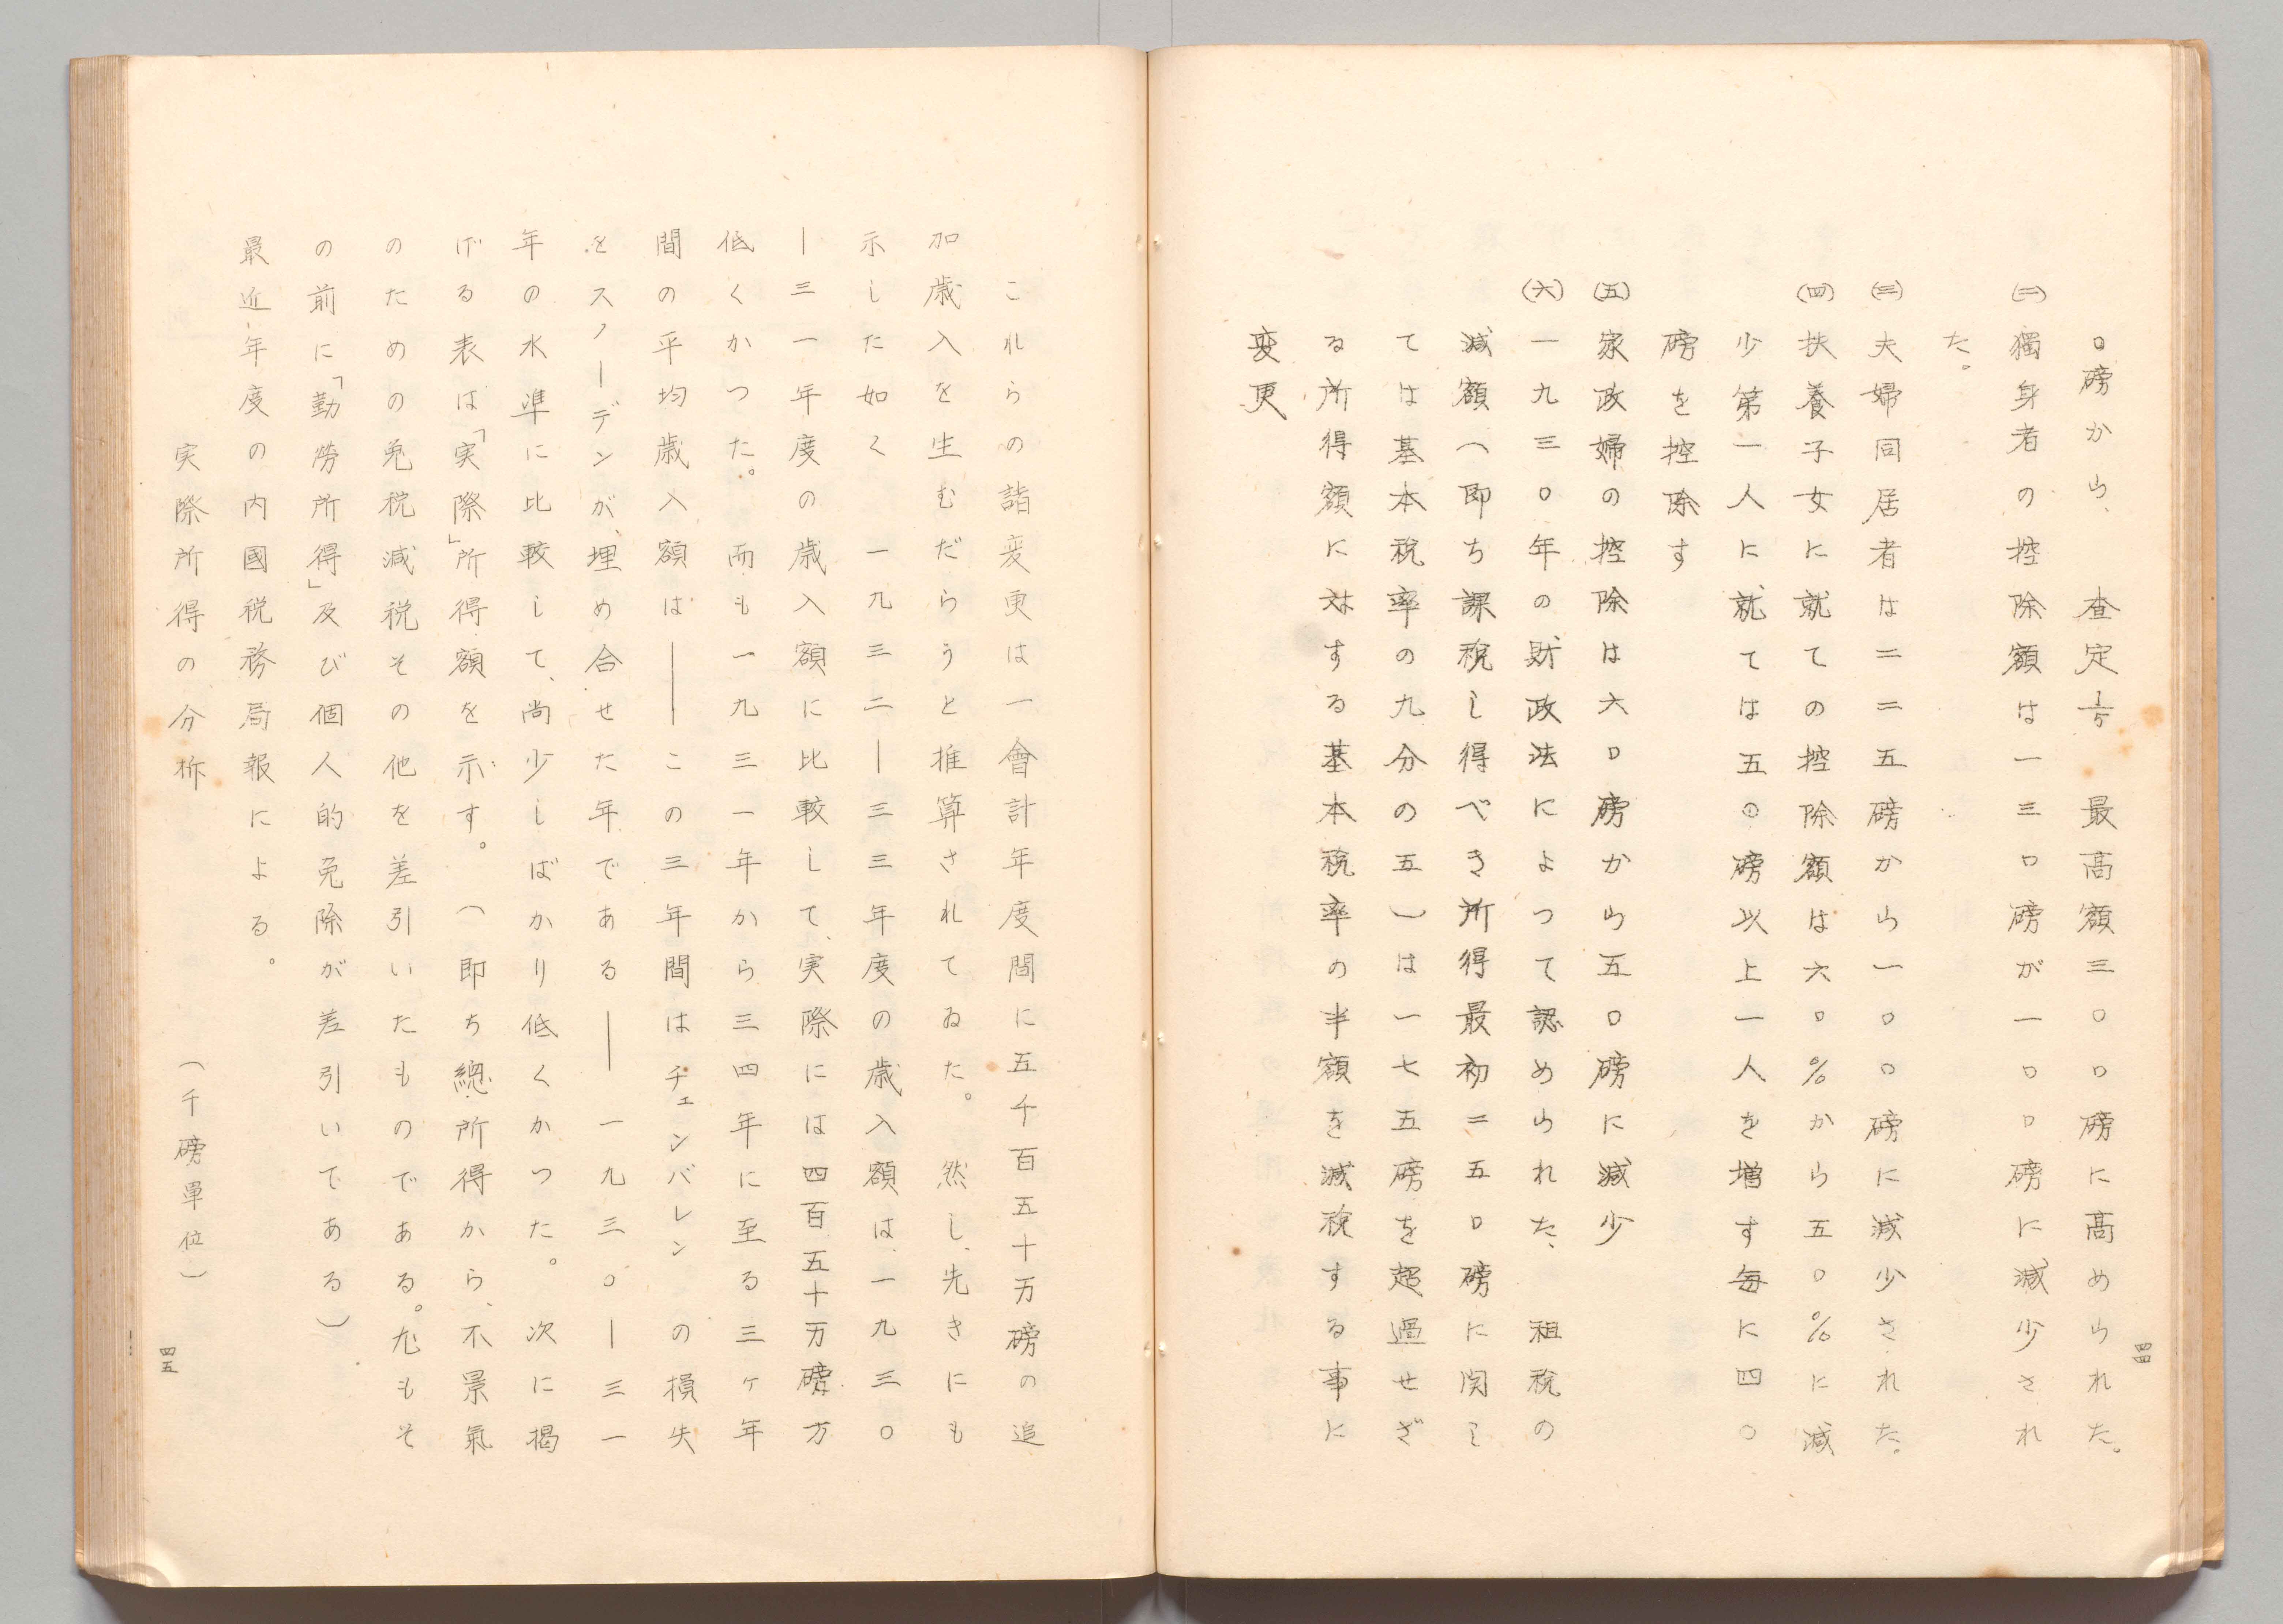 〇磅から、　査定1/5　最高額三〇〇磅に高められた。
(二)獨身者の控除額は一三〇磅が一〇〇磅に減少され
た。
(三)夫婦同居者は二二五磅から一〇〇磅に減少された。
(四)扶養子女に就ての控除額は六〇%から五〇%に減
少第一人に就ては五〇磅以上一人を増す毎に四〇
磅を控除す
(五)家政婦の控除は六〇磅から五〇磅に減少
(六)一九三〇年の財政法によつて認められた、租税の
減額(即ち課税し得べき所得最初二五〇磅に関し
ては基本税率の九分の五)は一七五磅を超過せざ
る所得額に対する基本税率の半額を減税する事に
変更
四四
これらの諸変更は一會計年度間に五千百五十万磅の追
加歳入を生むだらうと推算されてゐた。然し、先きにも
示した如く一九三二―三三年度の歳入額は、一九三〇
―三一年度の歳入額に比較して、実際には四百五十万磅方
低くかつた。而も一九三一年から三四年に至る三ヶ年
間の平均歳入額は――この三年間はチェンバレンの損失
をスノーデンが、埋め合せた年である――一九三〇―三一
年の水準に比較して、尚少しばかり低くかつた。次に掲
げる表は「実際」所得額を示す。(即ち總所得から、不景氣
のための免税減税その他を差引いたものである。尤もそ
の前に「勤勞所得」及び個人的免除が差引いてある)
最近年度の内國税務局報による。
実際所得の分析　(千磅單位)
四五